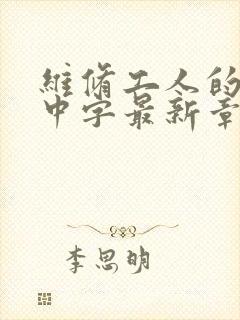 維脩工人的
中字最新章
李思明